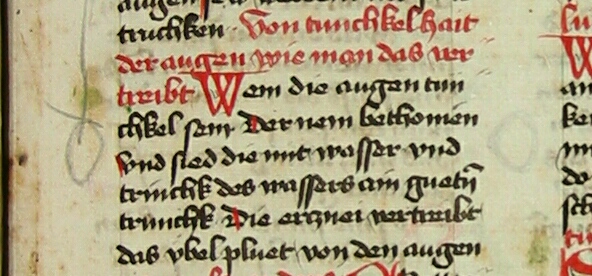 truchken. Von tunchkelhait
der augen wie man das ver
treibt Wem die augen tun
chkel sein. Der nem bethonien
vnd sied die mit wasser vnd
trinchk des wassers ain guetn̄
trunchk Die ercznei vertreibt
das vbel pluet von den augen